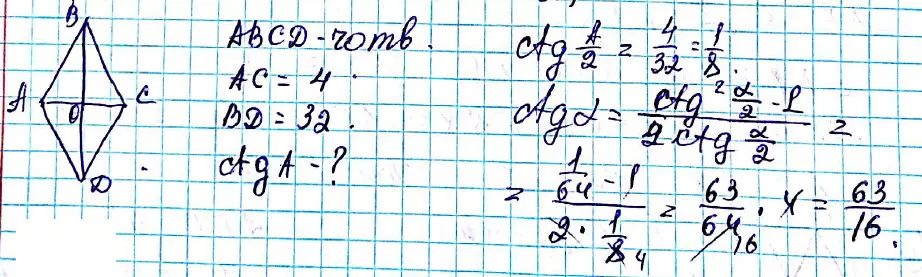 B
A C
O
D
ABCD - чотв.
AC = 4.
BD = 32.
ctg A - ?
ctg A/2 = 4/32 = 1/8.
ctg α = (ctg² α/2 - 1)/(2 ctg α/2) =
= (1/64 - 1)/(2 · 1/8 4) = 63/64 16 · 4 = 63/16.